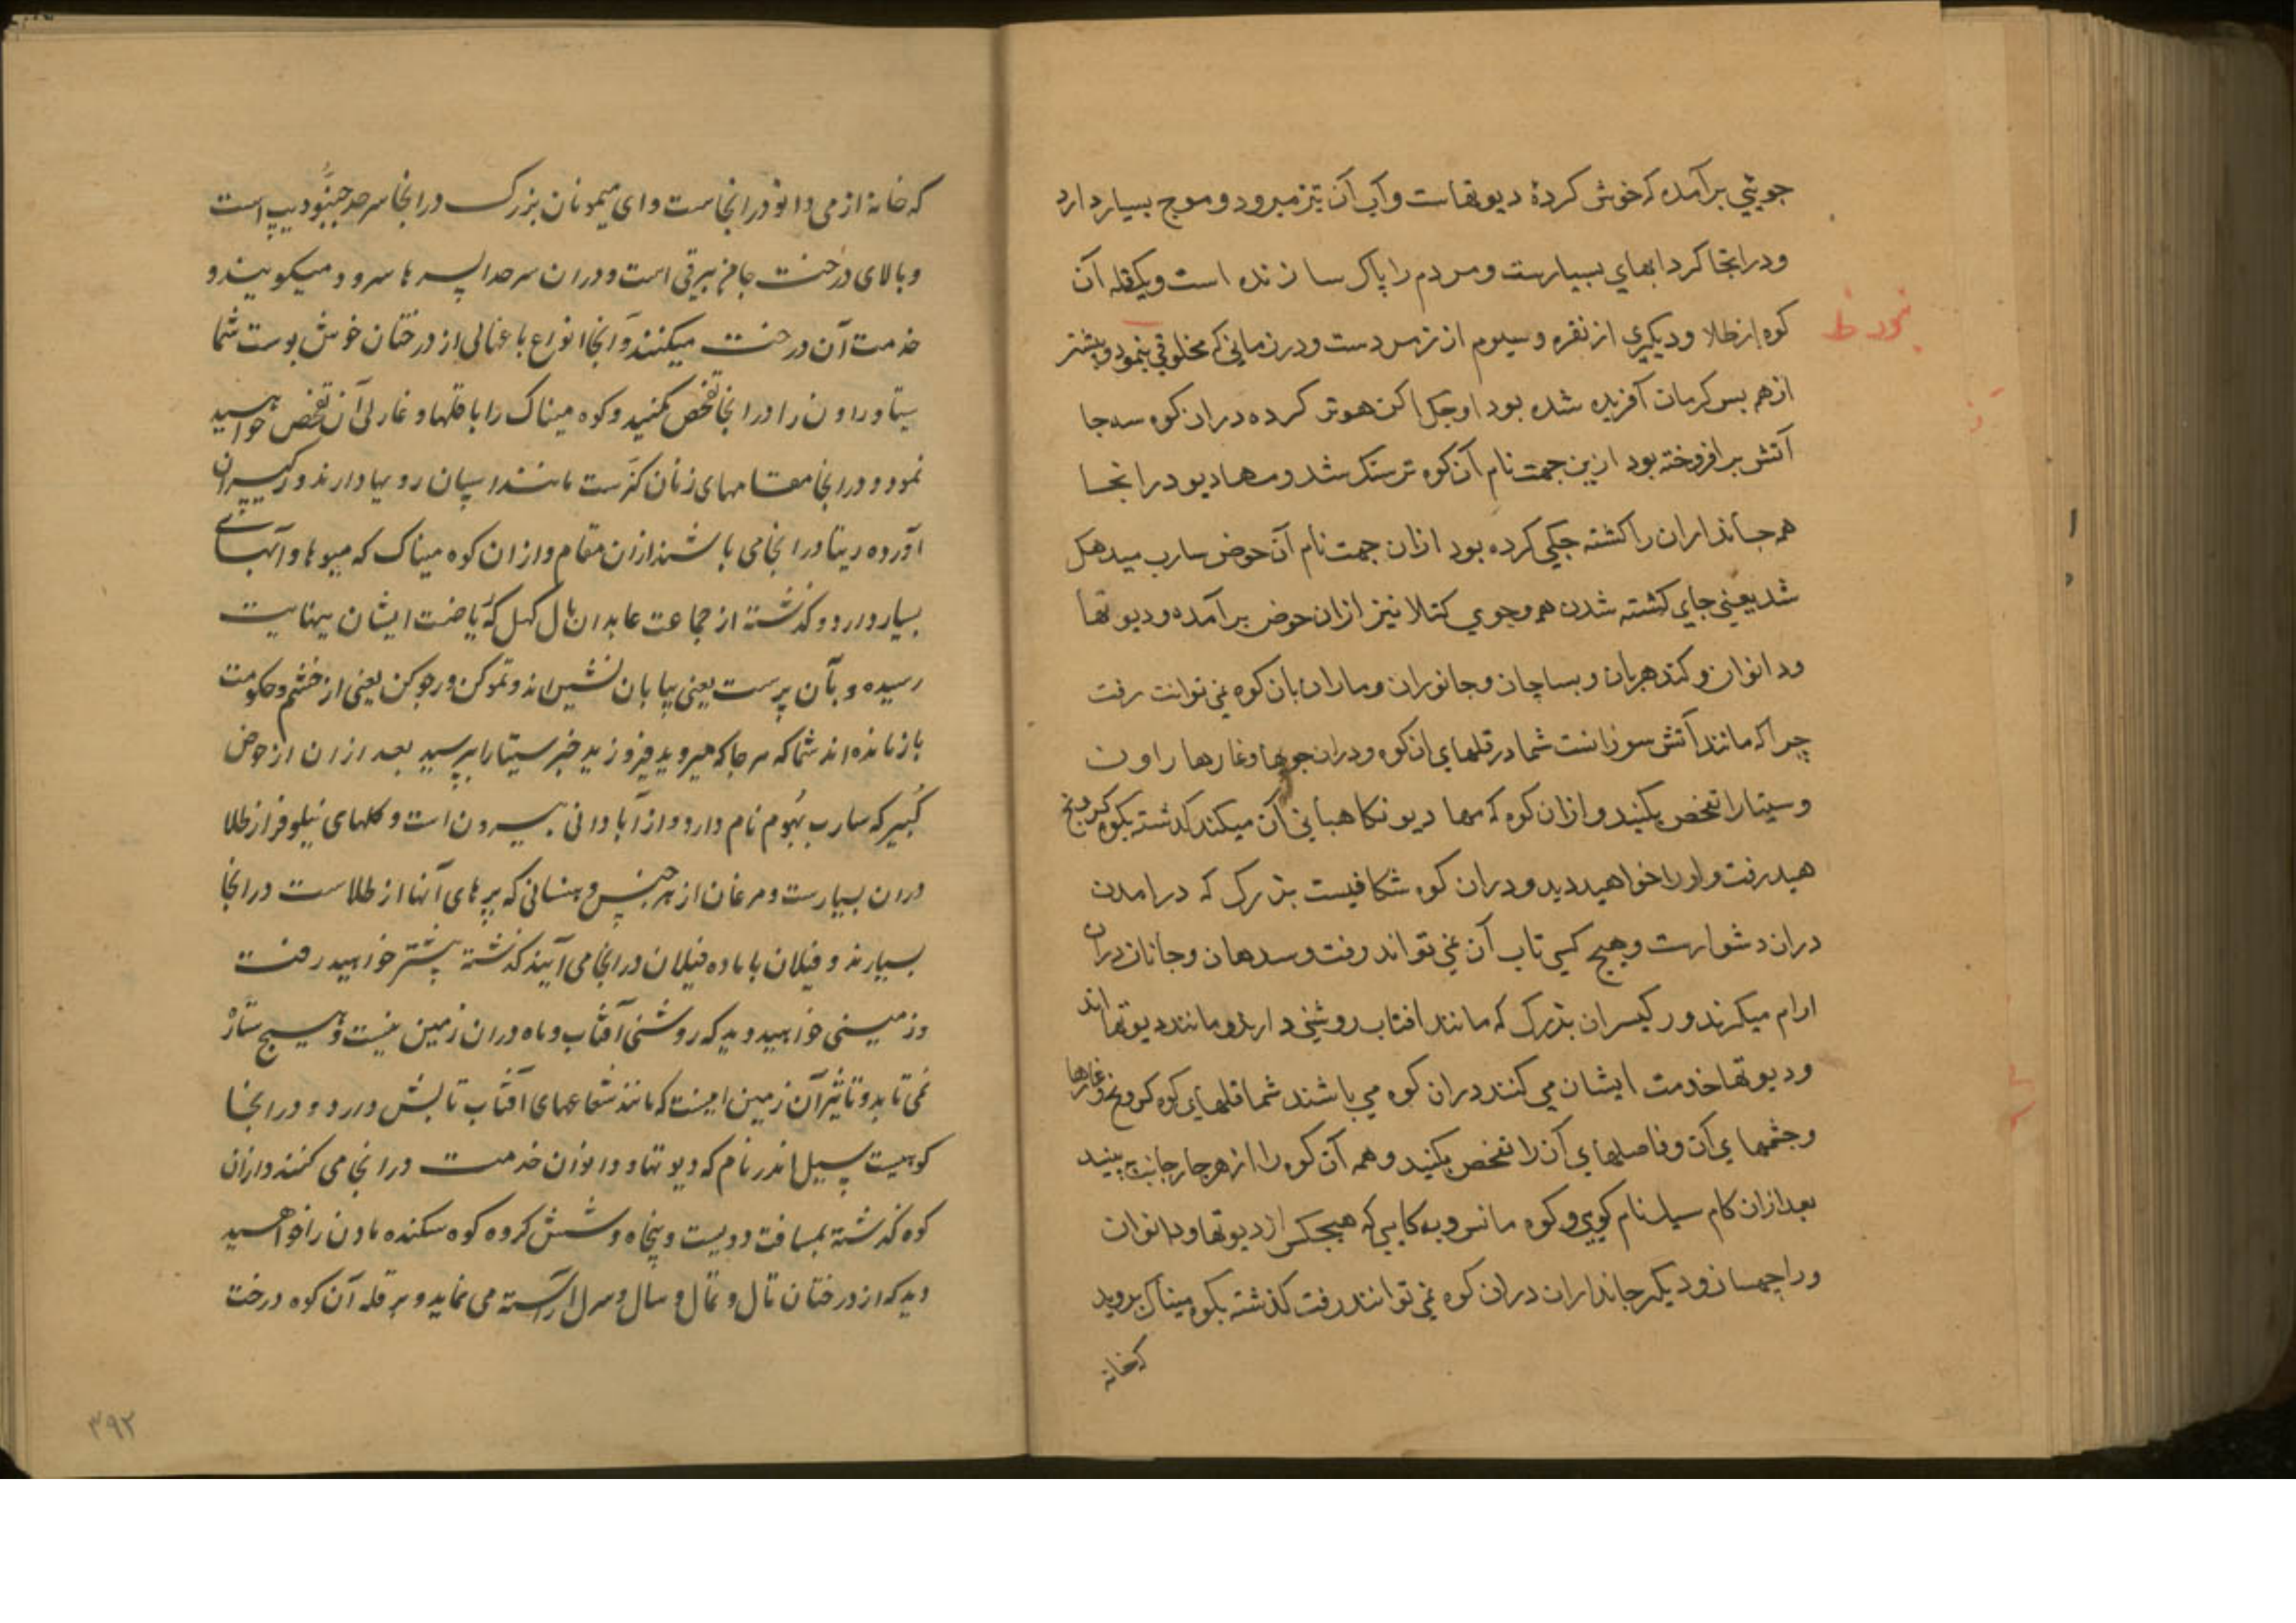 جویئی برآمده که خوش کردهٔ دیوتهاست و آب آن تیز میرود و موج بسیار دارد
ودرانجا کردابهای بسیارست ومردم را پاک سازنده است ویکقله آن
کوه از طلا ودیکری از نقره وسیوم از زمردست ودرزمانی که مخلوقی بنمود وپیشتر
ازهمه بس کرمان آفریده شده بود او جک اکن هوتر کرده دران کوه سه جا
آتش برافروخته بود ازین جهت نام آن کوه ترسنک شد ومهادیو درانجا
همه جانداران را کشته جکی کرده بود ازان جهت نام آن حوض سارب میدهک
شد یعنی جای کشته شدن همه وجوی کتلا نیز ازان حوض برآمده ودیوتها
ودانوان وکندهربان وبساچان وجانوران وماران بان کوه نمی توانند رفت
چراکه مانند آتش سوزانست شما درقلهای ان کوه ودران جویها وغارها راون
وسیتا را تفحص بکنید وازان کوه که مهادیو نکاهبانی آن میکند کذشته بکوه کرونج
هید رفت واو را خواهید دید ودران کوه شکافیست بزرک که درامدن
دران دشوارست وهیچ کسی تاب آن نمی تواند رفت وسدهان وجانان دران
ارام میکرند ورکیسران بزرک که مانند افتاب روشنی دارند ومانند دیوتها اند
ودیوتها خدمت ایشان می کنند دران کوه می باشند شما قلهای کوه کرونج وغارها
وچشمهای آن وفاصلهای آن را تفحص بکنید وهمه آن کوه را از هر چار جانب به بینید
بعد ازان کام سیل نام کوهی وکوه مانس وبه کایی که هیچکس از دیوتها ودانوان
وراچهسان ودیکر جانداران دران کوه نمی توانند رفت کذشته بکوه میناک بروید
که خانه
که خانهٔ از می دانو درانجاست وای میمونان بزرک درانجا سرحد جنبودیپ است
وبالای درخت جامن بیرقی است ودران سرحد اپسرها سرود میکویند و
خدمت آن درخت میکنند وآنجا انواع باغهای از درختان خوش بوست شما
سیتا و راون را درانجا تفحص کنید وکوه میناک را با قلها وغارهای آن تفحص خواهید
نمود ودرانجا مقامهای زنان کنرست مانند اسپان رویها دارند ورکیسران
آورده ریتا درانجا می باشند ازان مقام وازان کوه میناک که میوها و آبهای
بسیار دارد وکذشته از جماعت عابدان بال کهل که ریاضت ایشان بنهایت
رسیده وبآن پرست یعنی بیابان نشین اند وتموکن ورجوکن یعنی از خشم وحکومت
بازمانده اند شما که هرجا که میروید فیروزید خبر سیتا را بپرسید بعد ازان از حوض
کبیر که سارب بهوم نام دارد و از آبادانی بیرون است وکلهای نیلوفر از طلا
دران بسیارست ومرغان از هر جنس وهنسانی که پرهای آنها از طلاست درانجا
بسیارند وفیلان با ماده فیلان درانجا می آیند کذشته پیشتر خواهید رفت
وزمینی خواهید دید که روشنی آفتاب وماه دران زمین نیست وهیچ ستاره
نمی تابد وتاثیر آن زمین اینست که مانند شعاعهای آفتاب تابش دارد ودرانجا
کوهیست سپیل اندر نام که دیوتها ودانوان خدمت درانجا می کنند وازان
کوه کذشته بمسافت دویست وپنجاه وشش کروه کوه سکنده مادن را خواهید
دید که از درختان تال وتمال وسال وسرل آراسته می نماید وبر قلهٔ آن کوه درخت
۳۹۲